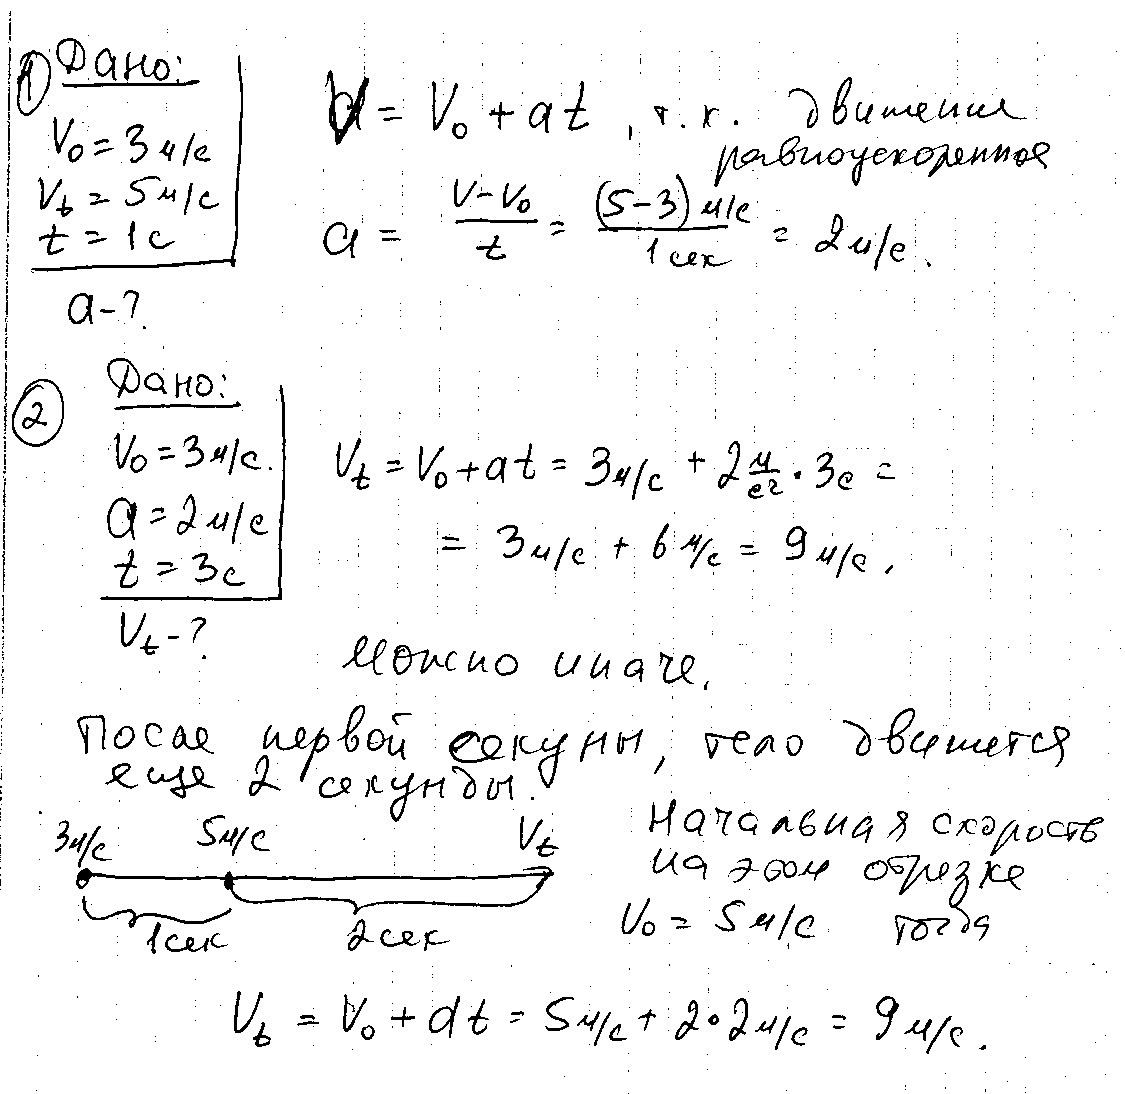 ① Дано:
V₀ = 3 м/с
Vt = 5 м/с
t = 1 с
a - ?
V = V₀ + at, т.к. движение
равноускоренное
a = (V - V₀)/t = (5-3) м/с / 1 сек = 2 м/с.
② Дано:
V₀ = 3 м/с.
a = 2 м/с
t = 3с
Vt - ?
Vt = V₀ + at = 3 м/с + 2 м/с² · 3с =
= 3 м/с + 6 м/с = 9 м/с.
Можно иначе.
После первой секуны, тело движется
еще 2 секунды.
3м/с 5м/с Vt
1 сек 2 сек
Начальная скорость
на этом отрезке
V₀ = 5 м/с тогда
Vt = V₀ + at = 5 м/с + 2·2 м/с = 9 м/с.